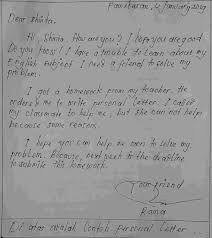 Pamekasan, 4 January 2019
Dear Shinta.
Hi, Shinta. How are you? I hope you are good.
Do you know? I have a trouble to learn about my
English subject. I need a friend to solve my
problem.
I got a homework from my teacher. He
orders me to write personal letter. I called
my classmate to help me, but she can not help
because some reason.
I hope you can help me soon to solve my
problem. Because, next week is the deadline
to submite this homework.
Your friend
Rana
Di atas adalah Contoh Personal Letter ...